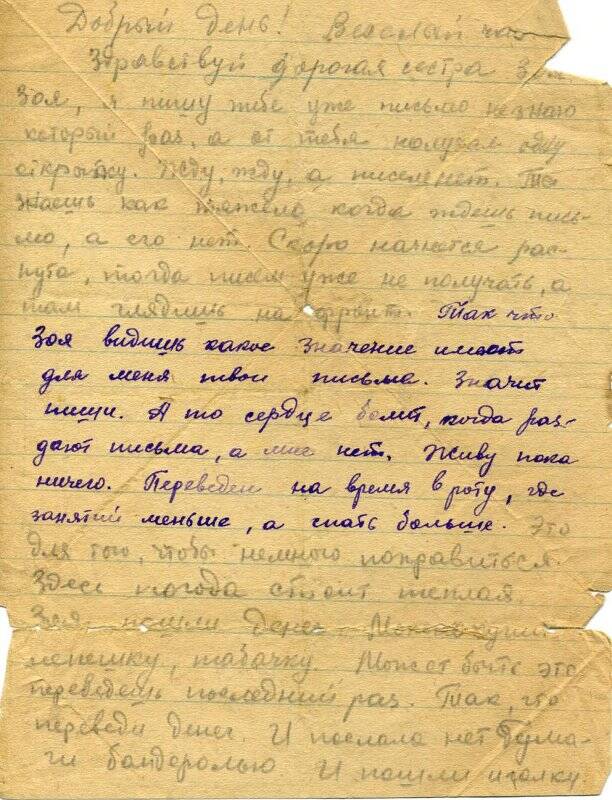 Добрый день! Веселый час
Здравствуй дорогая сестра Зоя.
Зоя, я пишу тебе уже письмо не знаю
который раз, а от тебя получил одну
открытку. Жду, жду, а писем нет. Ты
знаешь как тяжело когда ждешь пись-
мо, а его нет. Скоро начнется рас-
пута, тогда писем уже не получать, а
там глядишь на фронт. Так что
Зоя видишь какое значение имеют
для меня твои письма. Значит
пиши. А то сердце болит, когда раз-
дают письма, а мне нет. Живу пока
ничего. Переведен на время в роту, где
занятий меньше, а спать больше. Это
для того, чтобы немного поправиться.
Здесь погода стоит теплая.
Зоя, пошли денег. Можно купить
лепешку, табачку. Может быть это
переведешь последний раз. Так, что
переведи денег. И послала нет бума-
ги бандеролью. И пошли иголку.